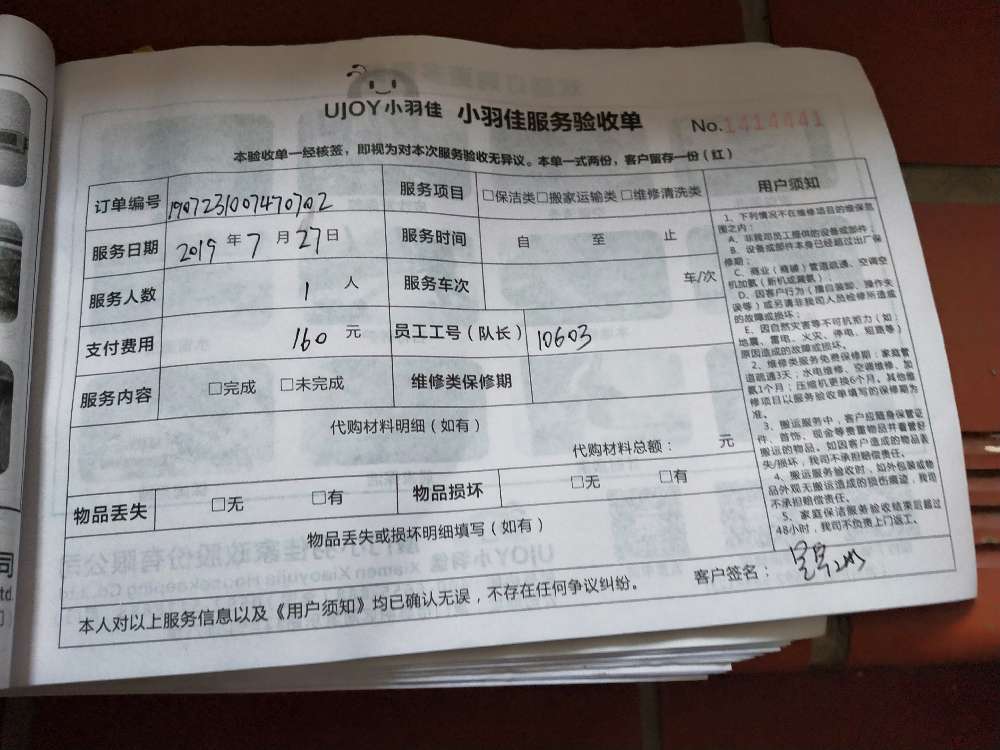 UJOY小羽佳 小羽佳服务验收单 No.1414441
本验收单一经核签，即视为对本次服务验收无异议。本单一式两份，客户留存一份（红）
订单编号 1907231007470702 服务项目 □保洁类□搬家运输类 □维修清洗类
服务日期 2019 年 7 月 27 日 服务时间 自 至 止
服务人数 1 人 服务车次 车/次
支付费用 160 元 员工工号（队长） 10603
服务内容 □完成 □未完成 维修类保修期
代购材料明细（如有）
代购材料总额： 元
物品丢失 □无 □有 物品损坏 □无 □有
物品丢失或损坏明细填写（如有）
客户签名：
本人对以上服务信息以及《用户须知》均已确认无误，不存在任何争议纠纷。
用户须知
1、下列情况不在维修项目的维保范
围之内：
A、非我司员工提供的设备或部件；
B、设备或部件本身已经超过出厂保
修期；
C、商业（商铺）管道疏通、空调空
机加氨（新机或漏氨）
D、因客户行为（擅自装卸、操作失
误等）或另请非我司人员检修所造成
的故障或损坏；
E、因自然灾害等不可抗拒力（如：
地震、雷电、火灾、停电、短路等）
原因造成的故障或损坏。
2、维修类服务免费保修期：家庭管
道疏通3天；水电维修、空调维修、加
氨1个月；压缩机更换6个月。其他维
修项目以服务验收单填写的保修期为
准。
3、搬运服务中，客户应随身保管证
件、首饰、现金等贵重物品并看管好
搬运的物品。如因客户造成的物品丢
失/损坏，我司不承担赔偿责任。
4、搬运服务验收时，如外包装或物
品外观无搬运造成的损伤痕迹，我司
不承担赔偿责任。
5、家庭保洁服务验收结束后超过
48小时，我司不负责上门返工。
司
td.